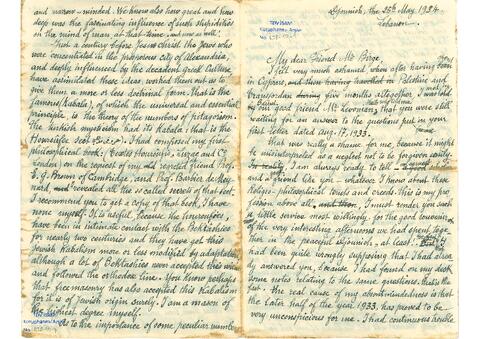 and narrow-minded. We know also how great and how
deep was the fascinating influence of such stupidities
on the mind of man, at that time and now as well.
Just a century before Jesus Christ, the Jews who
were concentrated in the prosperous city of Alexandria
and deeply influenced by the decadent Greek Culture,
have assimilated these ideas, worked them out as to
give them a more or less doctrinal form. That is the
famous (Kabala), of which the universal and essential
principle, is the theory of the numbers of Pitagorism.
The turkish mysticism had its Kabala: that is the
Hourufee Sect. I had composed my first
philosophical book: (Textes Houroufis, Luzac and Co.
London) on the request of my old honored friend Prof.
E. G. Brown of Cambridge, and Prof. Barbier de Mey-
nard, and revealed all the so called secrets of that book.
I recommend you to get a copy of that book, I have
none myself. It is useful, because the houroufees
have been in intimate contact with the Bektashies
for nearly two centuries and they have got this
Jewish Kabalism more or less modified by adaptation,
although a lot of Bektashies soon accepted this way
and followed the orthodox line. You know perhaps
that free masonry has also accepted this Kabalism
for it is of Jewish origin surely. I am a mason of
the highest degree myself.
As to the importance of some peculiar numbers
Djounieh, the 25th May, 1934
Lebanon.
My dear Friend Mr Birge
I felt very much ashamed, when after having been
in Cyprus, and then having travelled in Palestine and
Transjordan during five months altogether, I was told
by our good friend Mr. Leoman, that you were still
waiting for an answer to the questions put in your
first letter dated Aug. 17, 1933.
That was really a shame for me, because it might
be misinterpreted as a neglect not to be forgiven easily.
I am always ready to tell
and a friend like you - whatever I know about these
Religio-philosophical tenets and creeds. This is my pro-
fession above all, I must render you such
a little service most willingly, for the good souvenir
of the very interesting afternoons we had spent toge-
ther in the peaceful Djounieh, at least! But I
had been quite wrongly supposing that I had alrea-
dy answered you, because I had found on my desk
some notes relating to the same questions. That is the
fact. The real cause of my absentmindedness is that
the later half of the year 1933, has proved to be
very unconspicious for me. I had continuous trouble